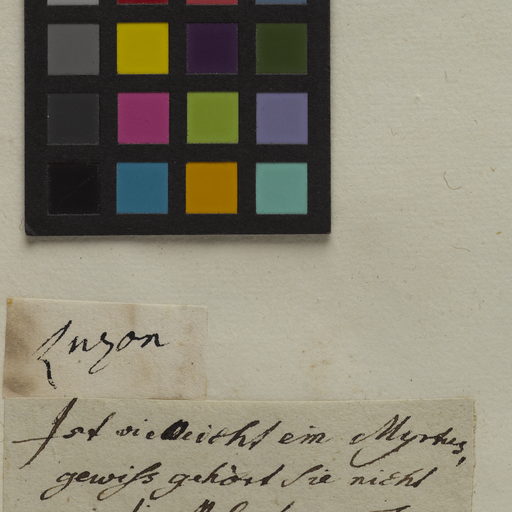 Luzon
Ist vielleicht ein Myrtus,
gewiss gehört sie nicht